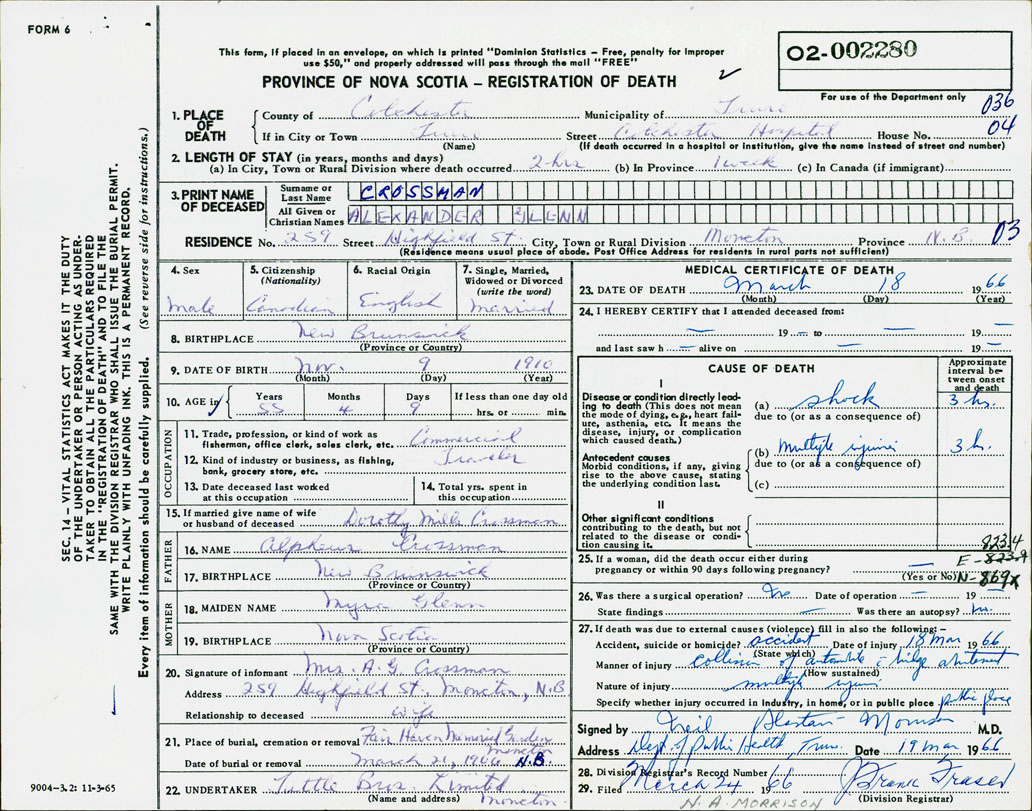 FORM 6
This form, if placed in an envelope, on which is printed "Dominion Statistics – Free, penalty for improper
use $50," and properly addressed will pass through the mail "FREE"
PROVINCE OF NOVA SCOTIA – REGISTRATION OF DEATH
02-002280
For use of the Department only
036
04
1. PLACE OF DEATH
County of Colchester Municipality of Truro
If in City or Town Truro Street Colchester Hospital House No.
(Name) (If death occurred in a hospital or institution, give the name instead of street and number)
2. LENGTH OF STAY (in years, months and days)
(a) In City, Town or Rural Division where death occurred 2 hrs (b) In Province 1 week (c) In Canada (if immigrant)
3. PRINT NAME OF DECEASED
Surname or Last Name CROSSMAN
All Given or Christian Names ALEXANDER GLENN
RESIDENCE No. 259 Street Highfield St. City, Town or Rural Division Moncton Province N.B. 03
(Residence means usual place of abode. Post Office Address for residents in rural parts not sufficient)
4. Sex
Male
5. Citizenship (Nationality)
Canadian
6. Racial Origin
English
7. Single, Married, Widowed or Divorced (write the word)
Married
8. BIRTHPLACE New Brunswick
(Province or Country)
9. DATE OF BIRTH Nov. 9 1910
(Month) (Day) (Year)
10. AGE in Years Months Days If less than one day old
55 4 9 hrs. or min.
OCCUPATION
11. Trade, profession, or kind of work as fisherman, office clerk, sales clerk, etc. Commercial
12. Kind of industry or business, as fishing, bank, grocery store, etc. Traveler
13. Date deceased last worked at this occupation
14. Total yrs. spent in this occupation
15. If married give name of wife or husband of deceased Dorothy Mills Crossman
FATHER
16. NAME Alpheus Crossman
17. BIRTHPLACE New Brunswick
(Province or Country)
MOTHER
18. MAIDEN NAME Myra Glenn
19. BIRTHPLACE Nova Scotia
(Province or Country)
20. Signature of informant Mrs. A G Crossman
Address 259 Highfield St., Moncton, N.B
Relationship to deceased wife
21. Place of burial, cremation or removal Fair Haven Memorial Garden Moncton
Date of burial or removal March 21, 1966 N.B.
22. UNDERTAKER Tuttle Bros. Limited
(Name and address) Moncton
MEDICAL CERTIFICATE OF DEATH
23. DATE OF DEATH March 18 1966
(Month) (Day) (Year)
24. I HEREBY CERTIFY that I attended deceased from:
— 19 — to — 19 —
and last saw h — alive on — 19 —
CAUSE OF DEATH
Approximate interval between onset and death
I
Disease or condition directly leading to death (This does not mean the mode of dying, e.g., heart failure, asthenia, etc. It means the disease, injury, or complication which caused death.)
(a) shock 3 hs.
due to (or as a consequence of)
Antecedent causes
Morbid conditions, if any, giving rise to the above cause, stating the underlying condition last.
(b) Multiple injuries 3 h.
due to (or as a consequence of)
(c)
II
Other significant conditions contributing to the death, but not related to the disease or condition causing it.
823.4
E-823.9
N-869x
25. If a woman, did the death occur either during pregnancy or within 90 days following pregnancy? —
(Yes or No)
26. Was there a surgical operation? No Date of operation — 19 —
State findings — Was there an autopsy? No.
27. If death was due to external causes (violence) fill in also the following:–
Accident, suicide or homicide? accident Date of injury 18 Mar 1966
(State which)
Manner of injury collision of automobile c bridge abutment
(How sustained)
Nature of injury multiple injuries
Specify whether injury occurred in industry, in home, or in public place public place
Signed by Neil Alastair Morrison M.D.
Address Dept of Public Health, Truro Date 19 Mar 1966
28. Division Registrar's Record Number
29. Filed March 24 1966 Frank Fraser
(Division Registrar)
N. A. MORRISON
SEC. 14 – VITAL STATISTICS ACT MAKES IT THE DUTY
OF THE UNDERTAKER OR PERSON ACTING AS UNDER-
TAKER TO OBTAIN ALL THE PARTICULARS REQUIRED
IN THE "REGISTRATION OF DEATH" AND TO FILE THE
SAME WITH THE DIVISION REGISTRAR WHO SHALL ISSUE THE BURIAL PERMIT.
WRITE PLAINLY WITH UNFADING INK. THIS IS A PERMANENT RECORD.
Every item of information should be carefully supplied. (See reverse side for instructions.)
9004-3.2: 11-3-65